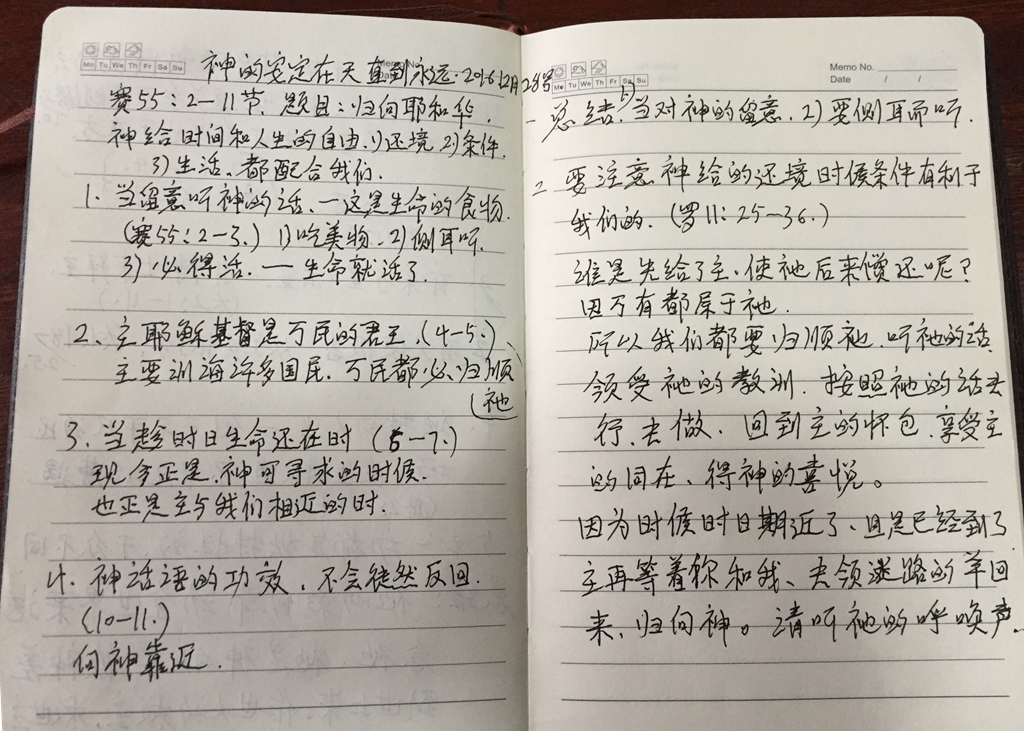 Mo Tu We Th Fr Sa Su
Memo No.
Date
神的安定在天直到永远·2016 12月28号
赛55:2-11节. 题目:归向耶和华.
神给时间和人生的自由.1)环境 2)条件.
3)生活. 都配合我们.
1. 当留意听神的话. 一这是生命的食物.
(赛55:2-3.) 1)吃美物. 2)侧耳听.
3)必得活. 一生命就活了.
2、主耶稣基督是万民的君王.(4-5.)
主要训诲许多国民. 万民都必归顺
祂
3. 当趁时日生命还在时 (6-7.)
现今正是.神可寻求的时候.
也正是主与我们相近的时.
4. 神话语的功效. 不会徒然反回.
(10-11.)
向神靠近.
Mo Tu We Th Fr Sa Su
Memo No.
Date / /
一 总结. 1)当对神的留意. 2)要侧耳而听.
二 要注意神给的还境时候条件有利于
我们的.(罗11:25-36.)
谁是先给了主、使祂后来偿还呢?
因万有都属于祂.
所以我们都要归顺祂. 听祂的话
领受祂的教训. 按照祂的话去
行、去做. 回到主的怀包. 享受主
的同在、得神的喜悦。
因为时候时日期近了、且是已经到了
主再等着你和我、去领迷路的羊回
来、归向神。请听祂的呼唤声.